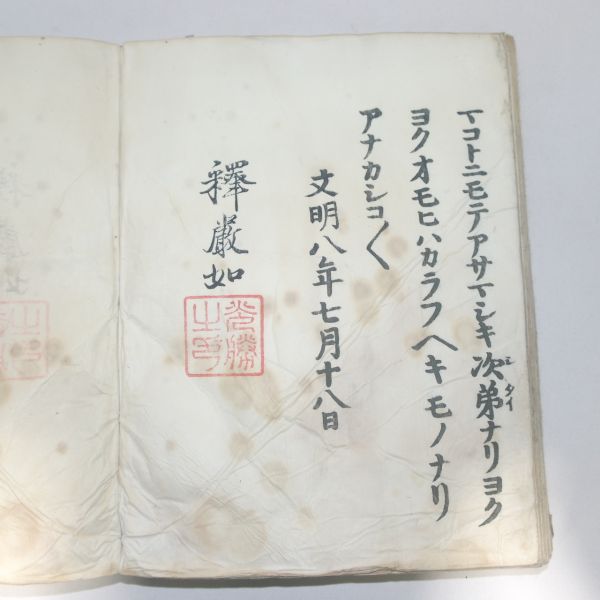 マコトニモテアサマシキ次第ナリヨク
シタイ
ヨクオモヒハカラフヘキモノナリ
アナカシコ〱
文明八年七月十八日
釋嚴如
光勝之印